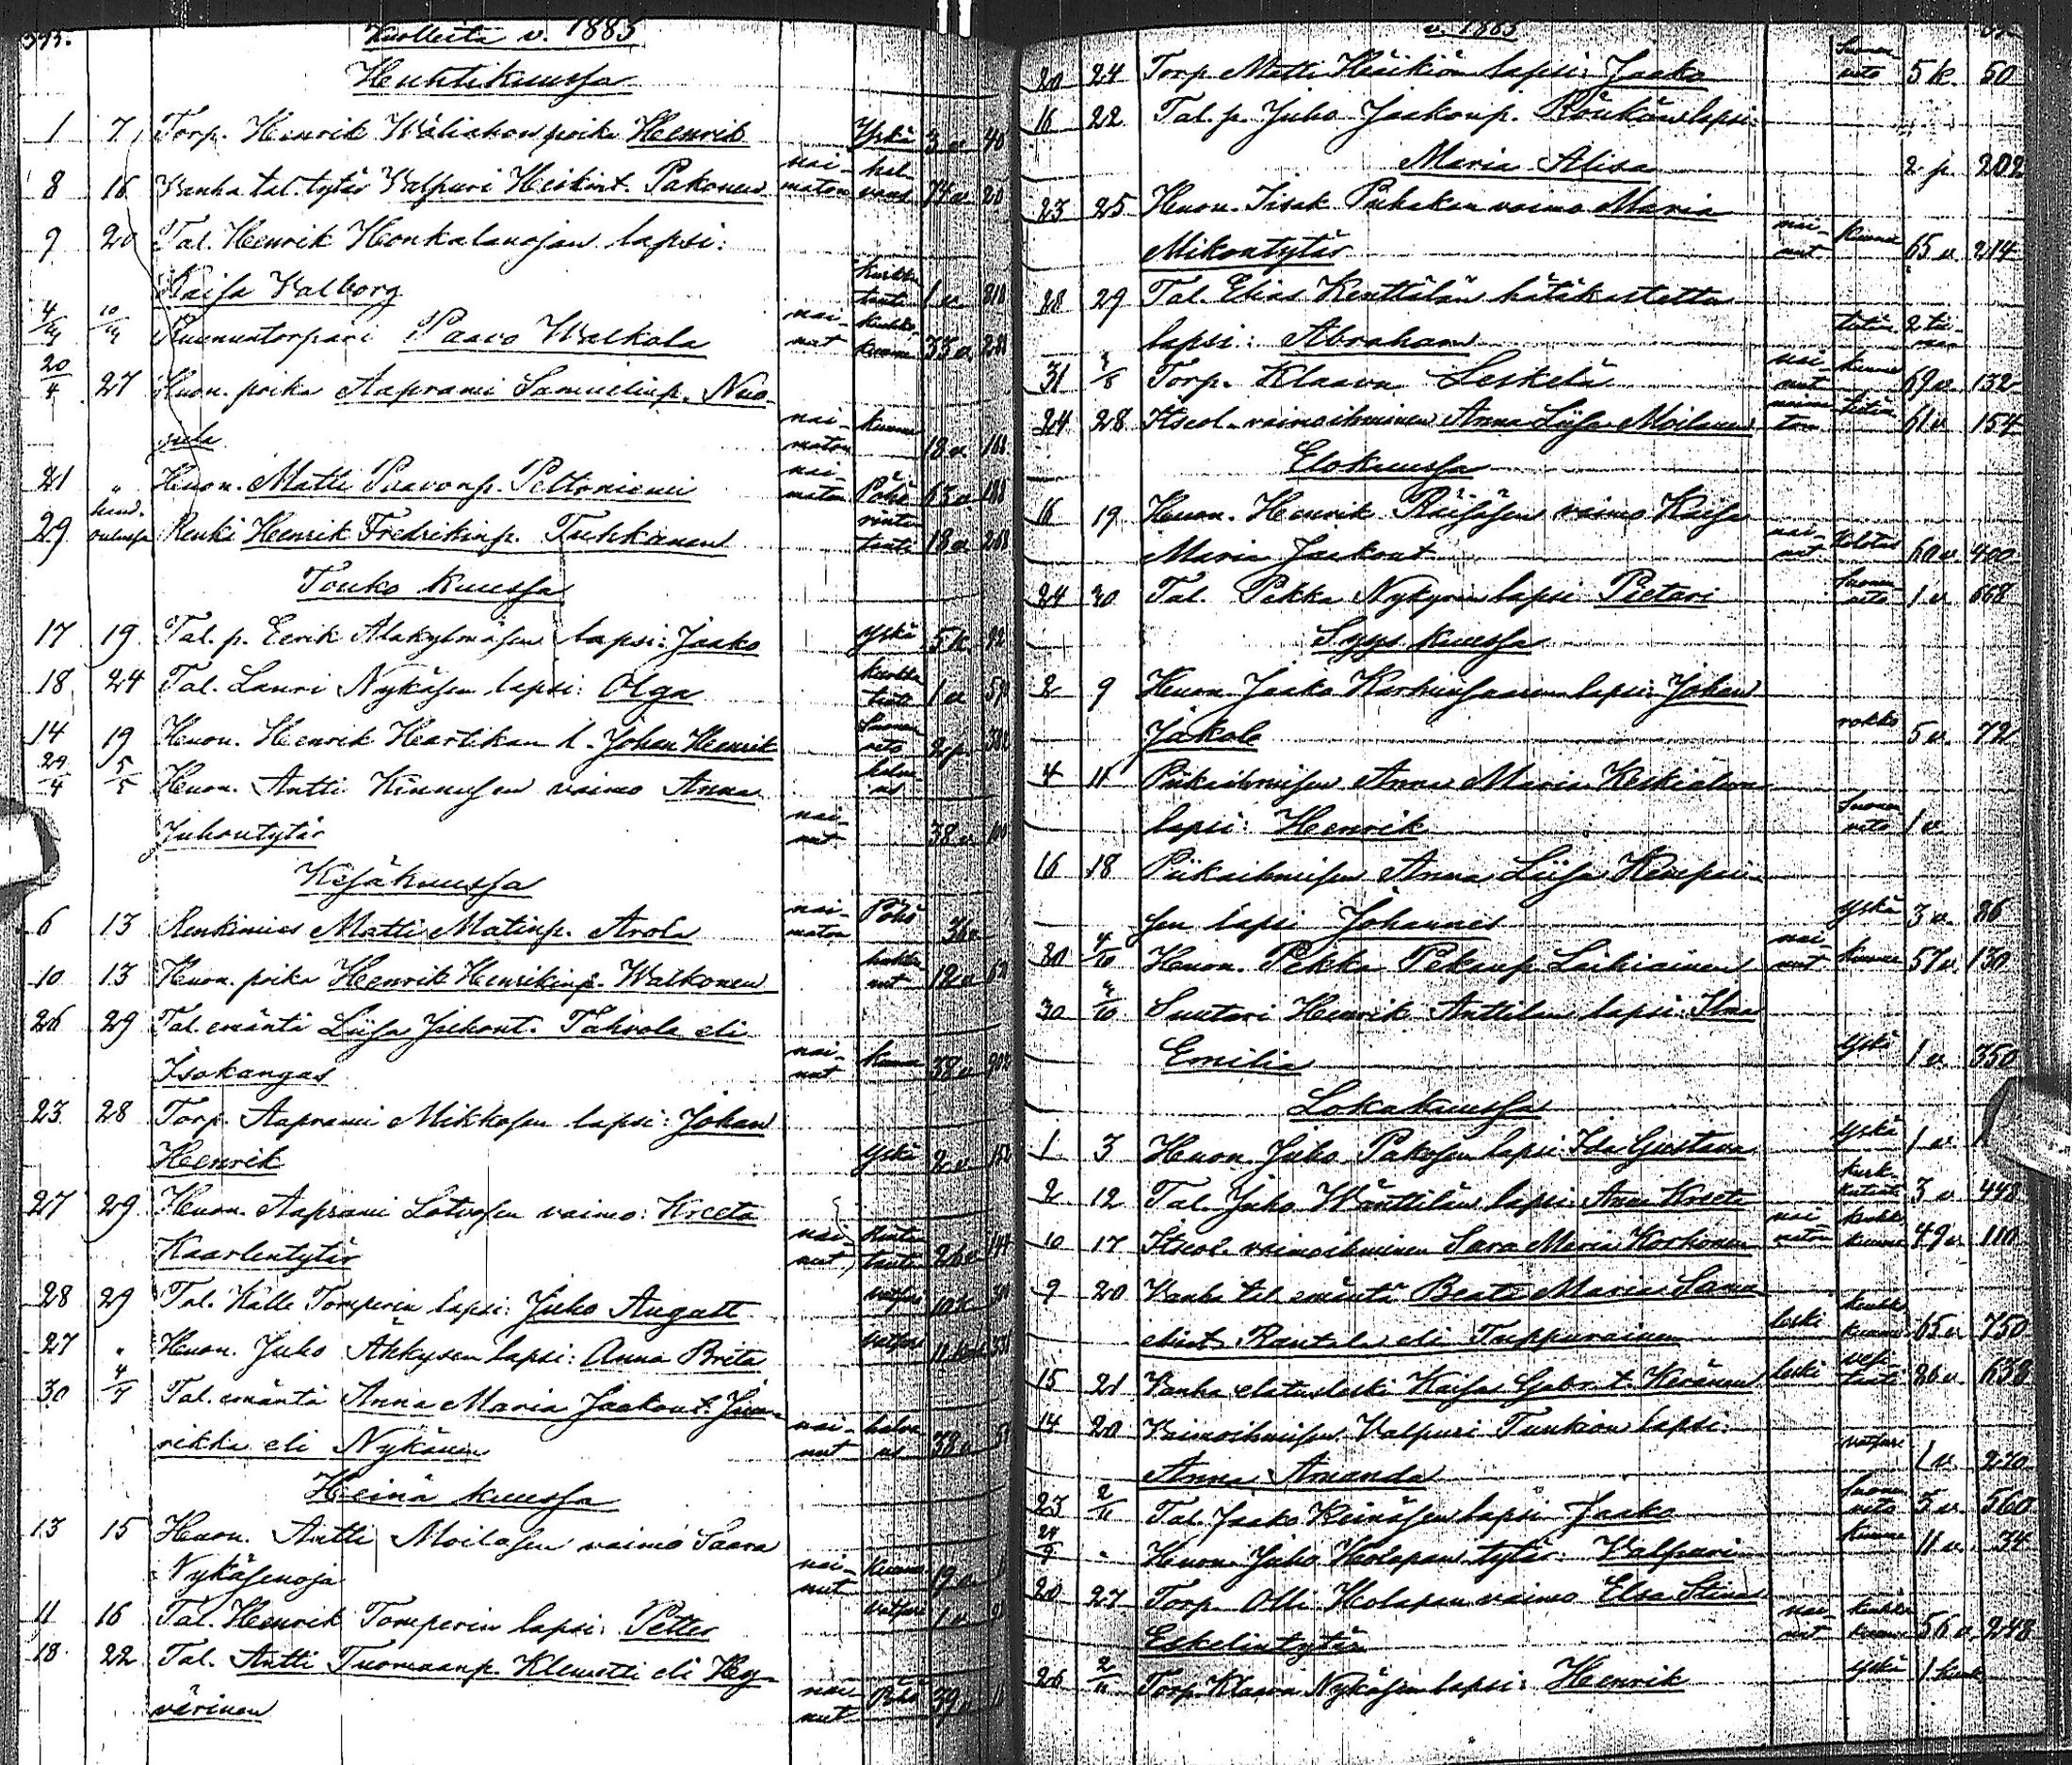 Kuolleita v. 1885
Huhtikuussa
1 7 Torp. Henrik Wäliahon poika Henrik Yskä 3 v 40
8 16 Vanha tal. tytär Valpuri Heikint. Pakonen nai- maton hal- vaus 74 v 20
9 20 Tal. Henrik Honkalanojan lapsi:
Kaisa Valborg kurkku tauti 1 v 218
4/4 10/4 Ruununtorpari Paavo Walkola nai- nut keuhko- kuume 33 v
20/4 27 Huon. poika Aaprami Samuelinp. Nuo-
jula nai- maton kuume 18 v 168
21 " Huon. Matti Paavonp. Peltoniemi nai- maton Pöhö 63 v 188
29 haud. Oulussa Renki Henrik Fredrikinp. Tuhkanen rinta- tauti 18 v 268
Touko kuussa
17 19 Tal. p. Eerik Alakylmäsen lapsi: Jaako yskä 5 k 92
18 24 Tal. Lauri Nykäsen lapsi: Olga kurkku tauti 1 v
14 19 Huon. Henrik Heartikan l. Johan Henrik Suonen veto 2 p.
29/4 5/5 Huon. Antti Kinnusen vaimo Anna halva us
Juhontytär nai- nut 38 v 100
Kesäkuussa
6 13 Renkimies Matti Matinp. Arola nai- maton Pöhö 36 v
10 13 Huon. poika Henrik Henrikinp. Walkonen hukku nut 12 v
26 29 Tal. emäntä Liisa Juhont. Tahvola eli
Isokangas nai- nut Kuume 38 v 902
23 28 Torp. Aaprami Mikkosen lapsi: Johan
Henrik yskä 2 v 152
27 29 Huon. Aaprami Lotvosen vaimo: Kreeta
Kaarlentytär nai- nut Rinta tauti 26 v 144
28 29 Tal. Kalle Tomperin lapsi: Juho August vatsuri 10 k
27 " Huon. Juho Ahkysen lapsi: Anna Brita vatsuri 11 kuu
30 4/7 Tal. emäntä Anna Maria Jaakont. Juu-
rikka eli Nykänen nai- nut halva us 38 v
Heinä kuussa
13 15 Huon. Antti Moilasen vaimo Saara
Nykäsenoja nai- nut Kuume 19 v
11 16 Tal. Henrik Tomperin lapsi: Petter vatsuri 1 v
18 22 Tal. Antti Tuomaanp. Klemetti eli Hy-
värinen nai nut Pöhö 39 v
v. 1885
20 24 Torp. Matti Häikiön lapsi: Jaako Suonen veto 5 k. 50
16 22 Tal. p. Juho Jaakonp. Röukäs lapsi:
Maria Alisa 2 p. 202
23 25 Huon. Iisak Puhakan vaimo Maria
Mikontytär nai- nut kuume 65 v 214
28 29 Tal. Elias Kenttälän hätäkastettu
lapsi: Abraham 2 tii- maa
31 2/8 Torp. Klaava Leskelä nai- nut kuume 69 v. 132
24 28 Itseol. vaimoihminen Anna Liisa Moilanen naima ton 61 v. 154
Elokuussa
16 19 Huon. Henrik Räisäsen vaimo Kaisa
Maria Jaakont nai- nut Kolotus 60 v. 400
24 30 Tal. Pekka Nykyrin lapsi Pietari Suonen veto 1 v 668
Syys kuussa
2 9 Huon. Jaako Karhunsaaren lapsi: Johan
Jakob rokko 5 v. 72
4 11 Piikaihmisen Anna Maria Keskiahon
lapsi: Henrik Suonen veto 1 v
16 18 Piikaihmisen Anna Liisa Kemppai-
sen lapsi Johannes yskä 3 v. 86
30 4/10 Huon. Pekka Pekanp. Leihiainen nai- nut kuume 57 v. 130
30 4/10 Suutari Henrik Anttilan lapsi: Ilma
Emilia yskä 1 v. 350
Lokakuussa
1 3 Huon. Juho Pakosen lapsi Ida Gustava yskä 1 v.
2 12 Tal. Juho Wänttilän lapsi: Anna Kreeta kurk- kutauti 3 v. 448
10 17 Itseol. vaimoihminen Sara Maria Korhonen nai maton keuhko kuume 49 v. 110
9 20 Vanha tal. emäntä Beata Maria Sam-
elint. Rantala eli Tuppurainen leski keuhko kuume 65 v. 750
15 21 Vanha elatusleski Kaisa Gabr. t. Keränen leski vesi- tauti 86 v. 638
14 20 Vaimoihmisen Valpuri Tunkion lapsi:
Anna Amanda vatsuri 1 v. 220
23 2/11 Tal. Jaako Keinäsen lapsi Jaako Suonen veto 5 v. 560
24/9 " Huon. Juho Holapan tytär: Valpuri kuume 11 v. 34
20 27 Torp. Olli Holapan vaimo Elsa Stina
Eskelintytär nai- nut keuhko kuume 56 v. 248
26 2/11 Torp. Klaava Nykäsen lapsi: Henrik yskä 1 kuuk